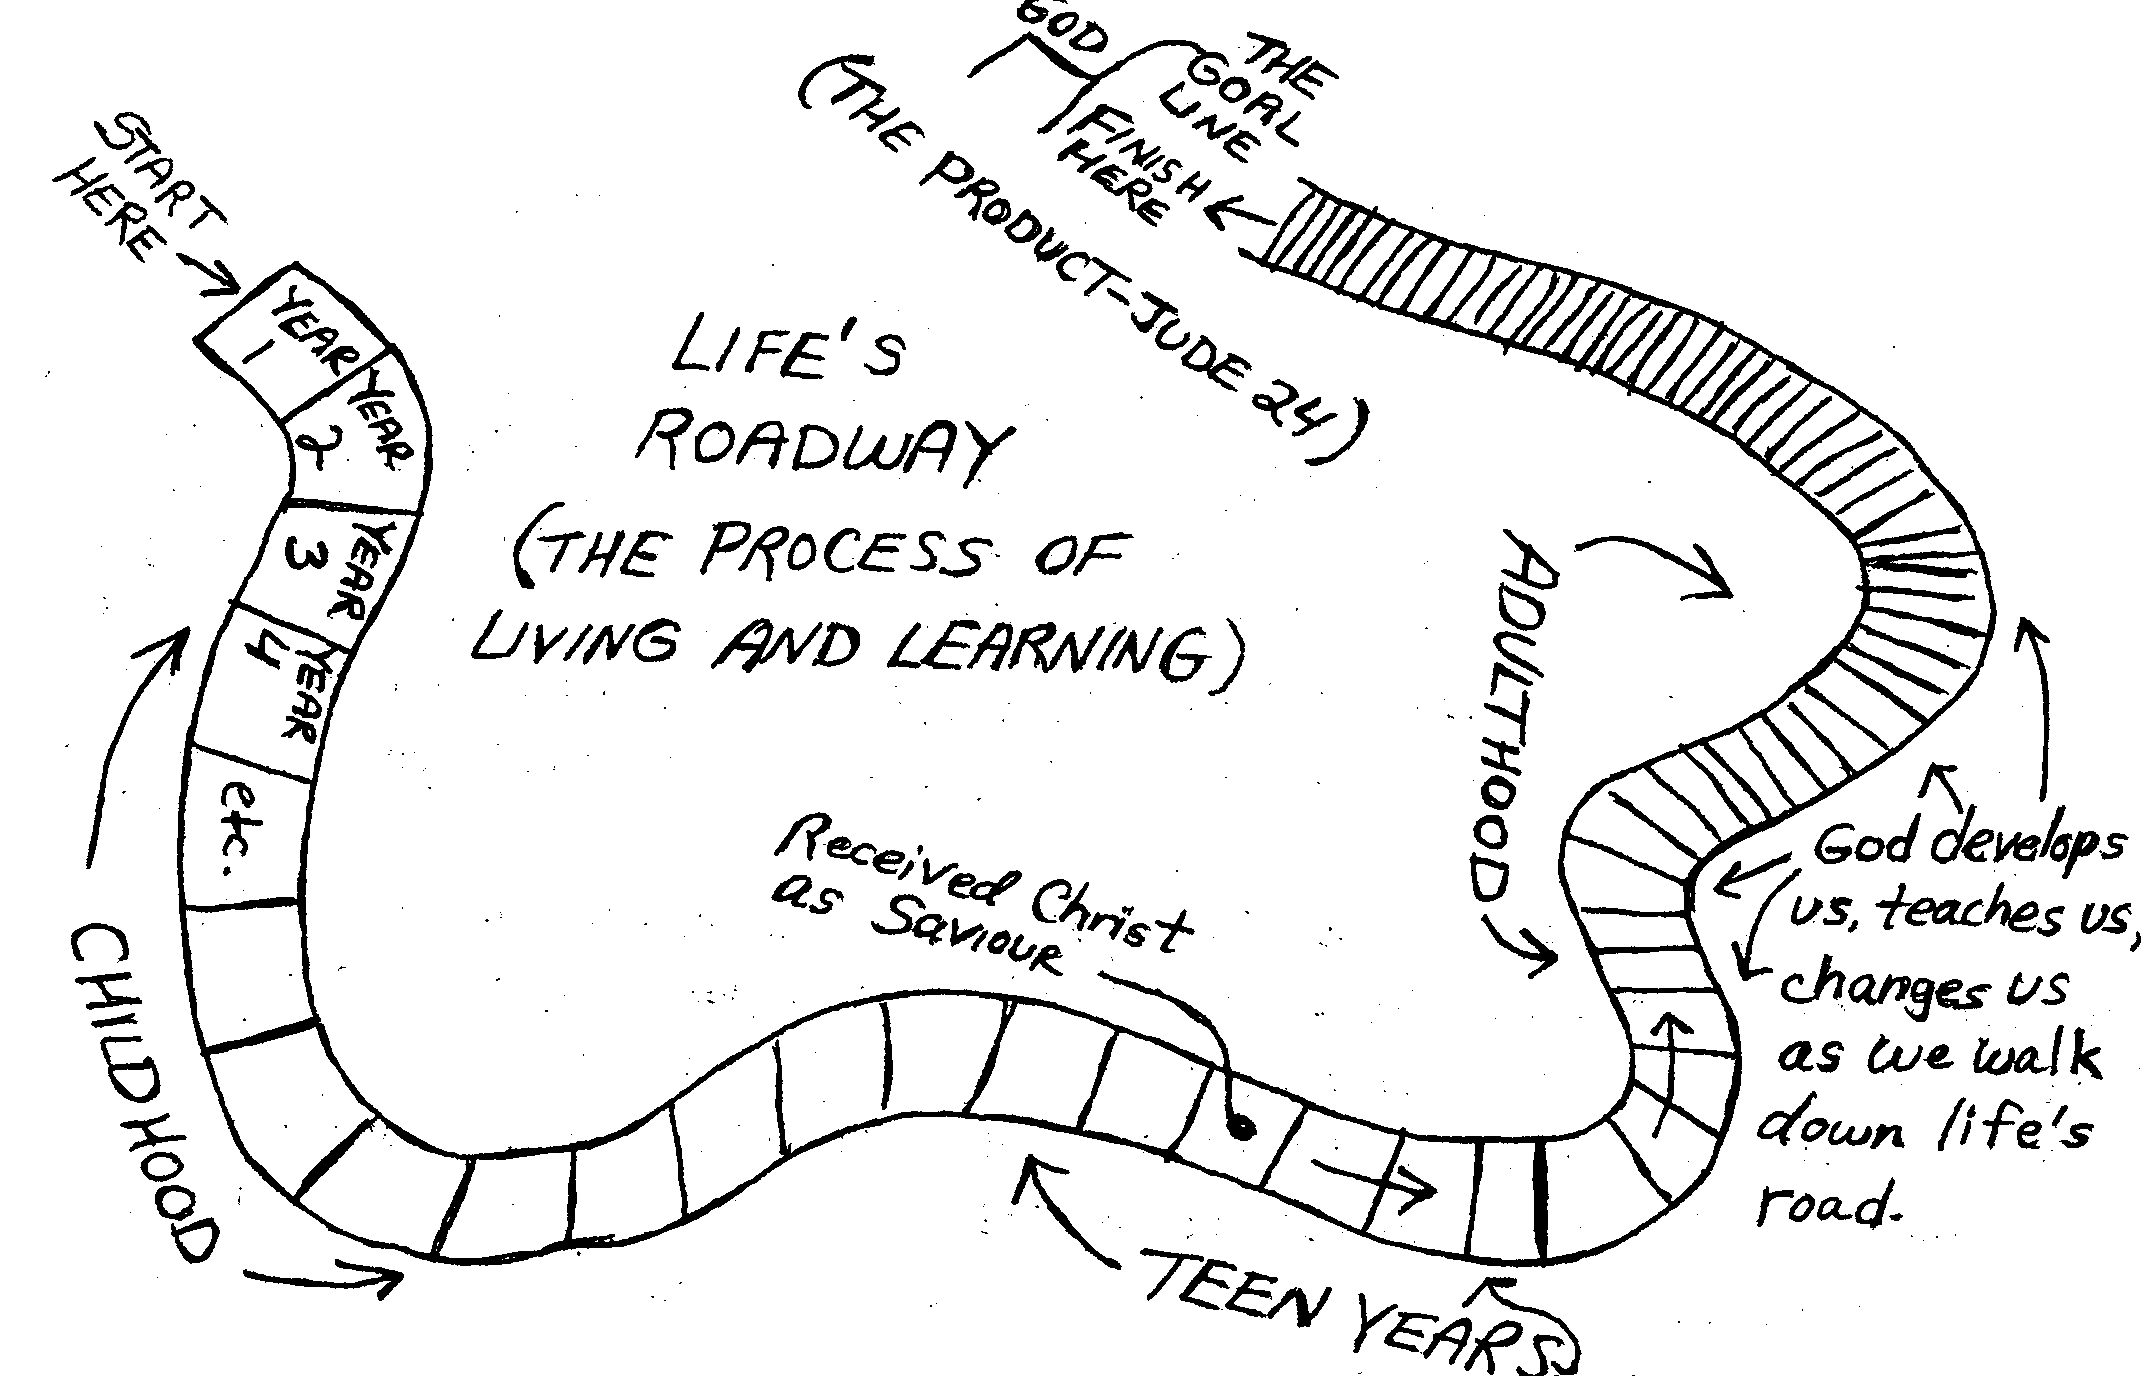 GOD
THE
GOAL
LINE
FINISH
HERE
(THE PRODUCT-JUDE 24)
START
HERE
YEAR
1
YEAR
2
YEAR
3
YEAR
4
etc.
LIFE'S
ROADWAY
(THE PROCESS OF
LIVING AND LEARNING)
CHILDHOOD
Received Christ
as Saviour
TEEN YEARS
ADULTHOOD
God develops
us, teaches us,
changes us
as we walk
down life's
road.